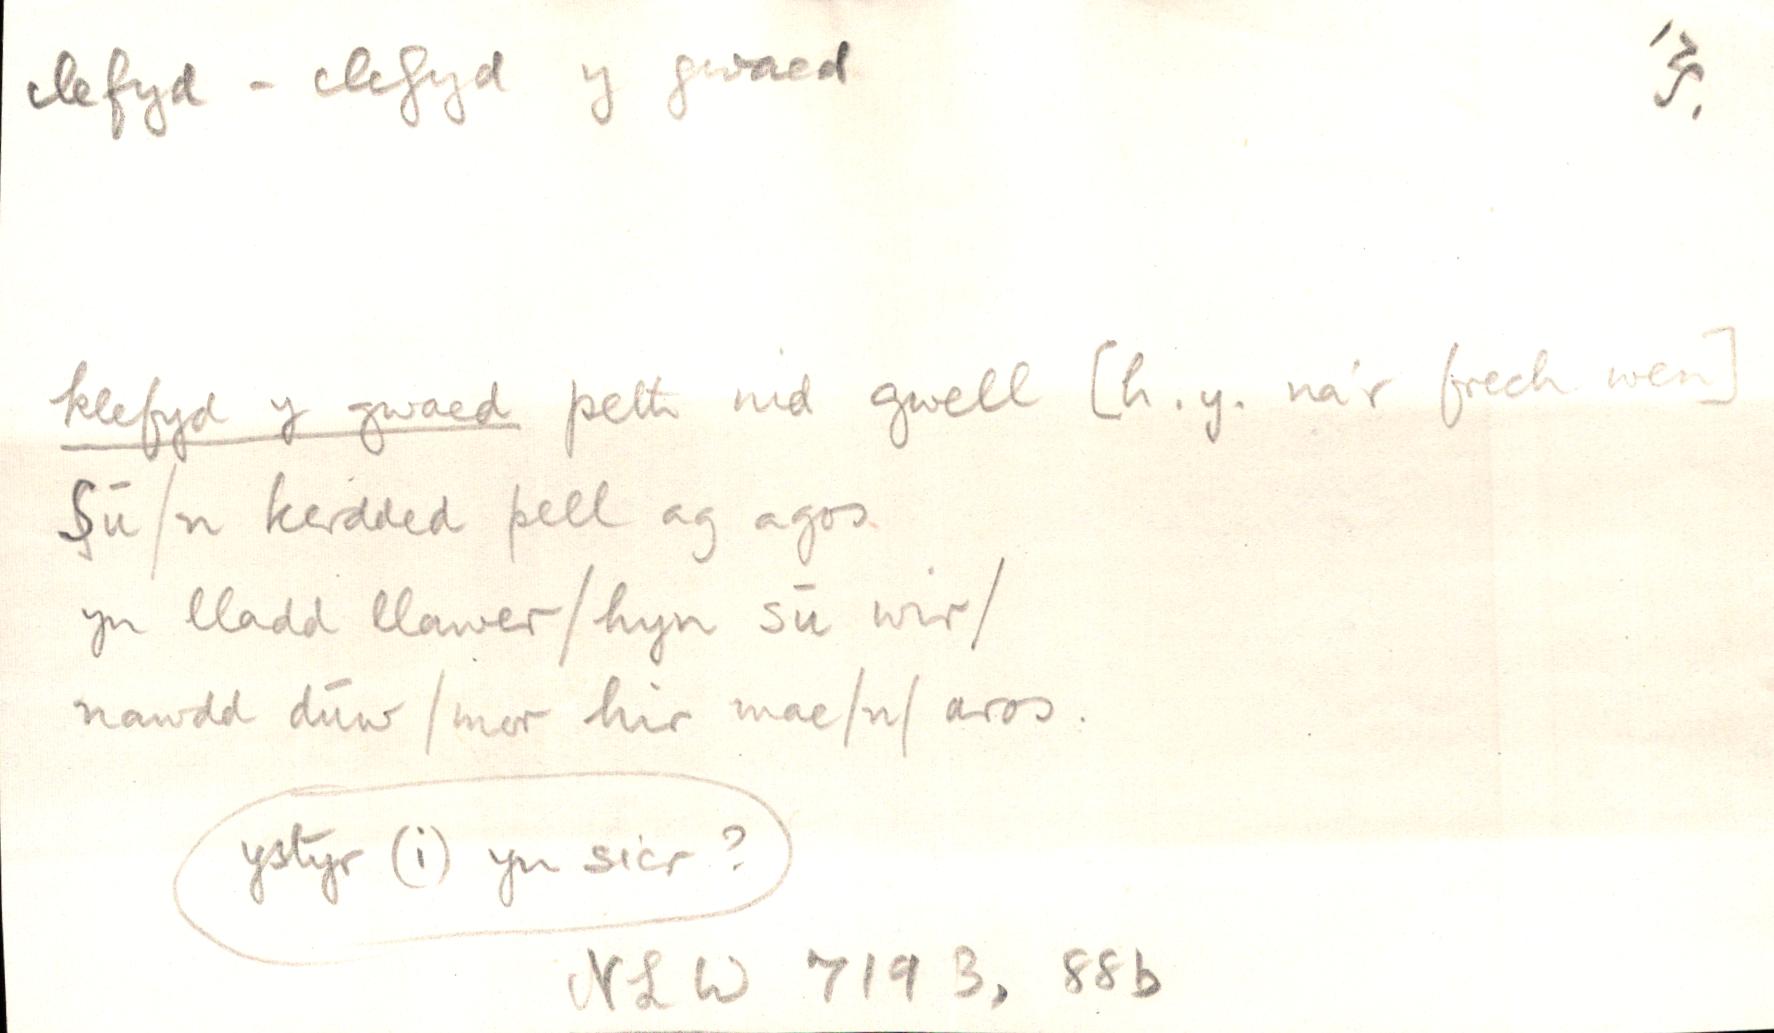 clefyd - clefyd y gwaed
klefyd y gwaed peth nid gwell [h.y. na'r frech wen]
sū/n kerdded pell ag agos
yn lladd llawer/hyn sū wir/
nawdd dūw/mor hir mae/n/ aros.
ystyr (i) yn sicr?
NLW 719 B, 88b